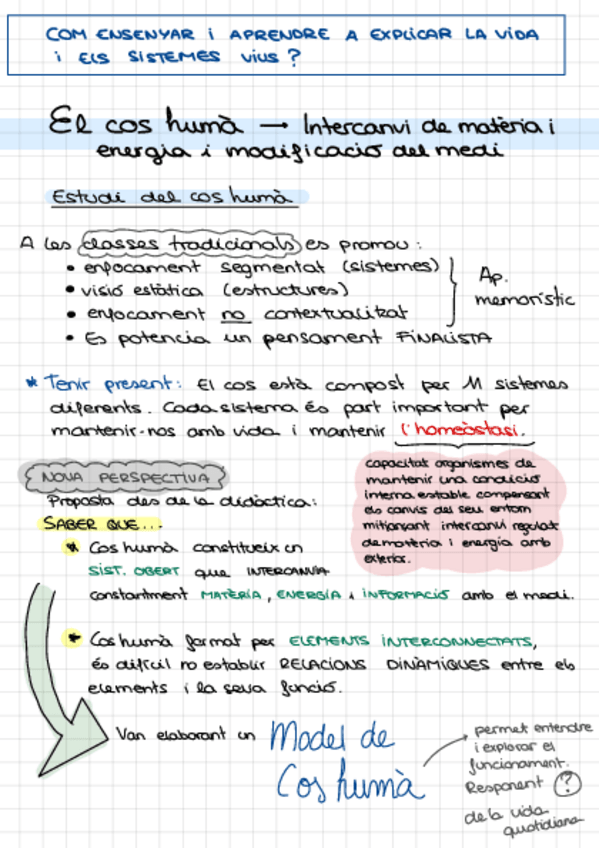 COM ENSENYAR i APRENDRE A EXPLICAR LA VIDA
i ELS SISTEMES VIUS?
El cos humà → Intercanvi de matèria i
energia i modificació del medi
Estudi del cos humà
A les classes tradicionals es promou:
• enfocament segmentat (sistemes)
• visió estàtica (estructures)
• enfocament no contextualitzat
• Es potencia un pensament FINALISTA
Ap.
memorístic
* Tenir present: El cos està compost per M sistemes
diferents. Cada sistema és part important per
mantenir-nos amb vida i mantenir l'homeòstasi.
capacitat organismes de
mantenir una condició
interna estable compensant
els canvis del seu entorn
mitjançant intercanvi regulat
de matèria i energia amb
exterior.
NOVA PERSPECTIVA
Proposta des de la didàctica:
SABER QUE...
* Cos humà constitueix un
SIST. OBERT que INTERCANVIA
constantment MATÈRIA, ENERGÍA i INFORMACIÓ amb el medi.
* Cos humà format per ELEMENTS INTERCONNECTATS,
és difícil no establir RELACIONS DINÀMIQUES entre els
elements i la seva funció.
Van elaborant un Model de
Cos humà
permet entendre
i explorar el
funcionament.
Responent ?
de la vida
quotidiana